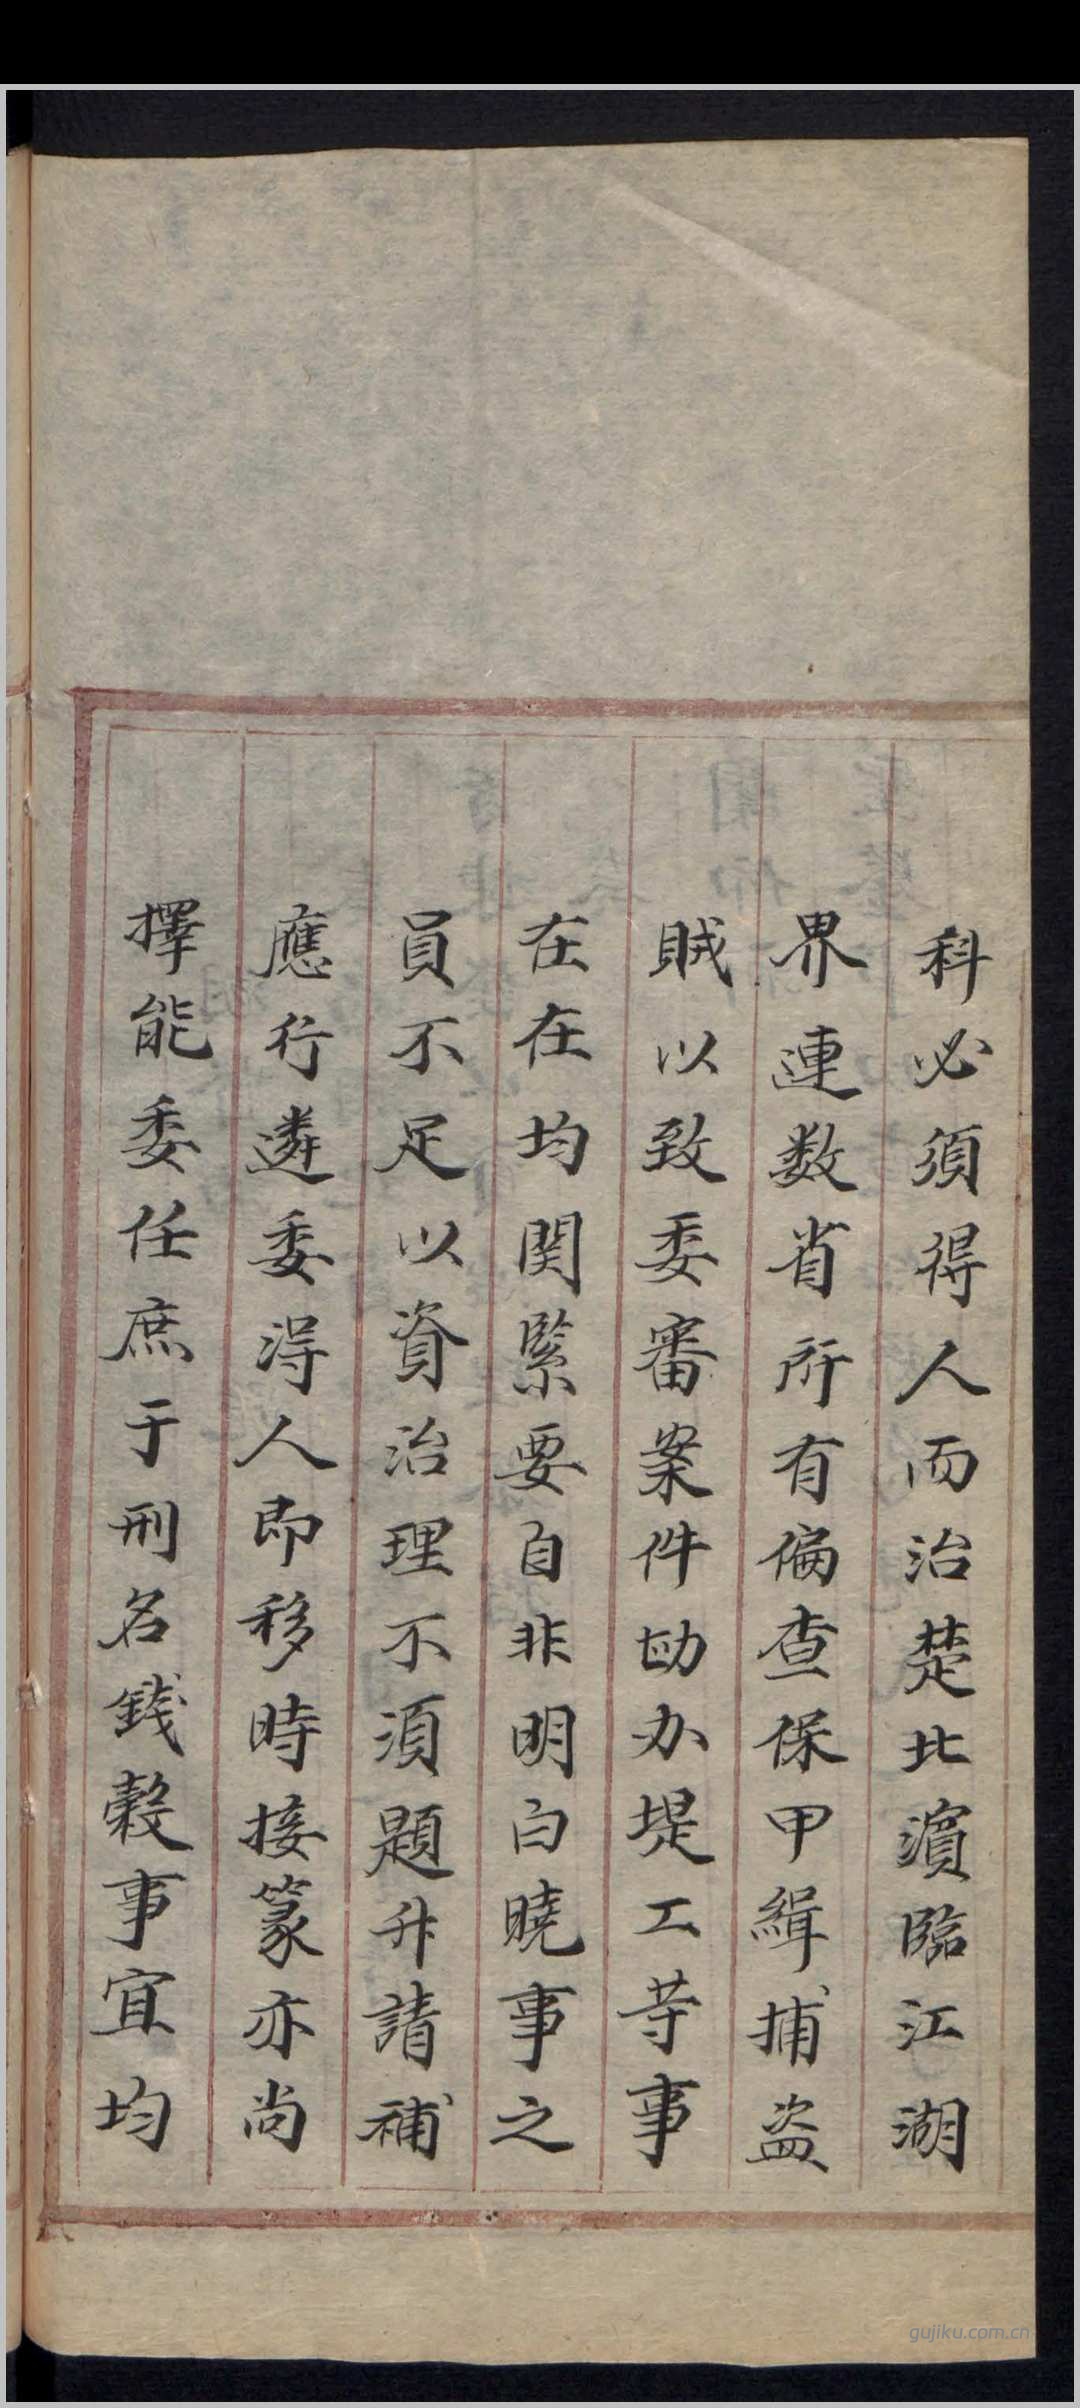 科必須得人而治楚北濵臨江湖
界連数省所有徧查保甲緝捕盗
賊以致委審案件勘办堤工䓁事
在在均関緊要自非明白曉事之
員不足以資治理不須題升請補
應行遴委淂人即移時接篆亦尚
擇能委任庶于刑名錢穀事宜均
gujiku.com.cn